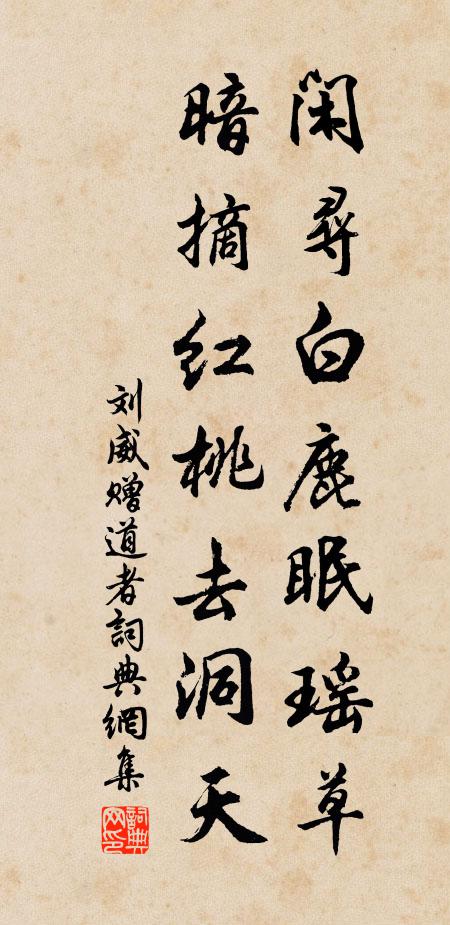 閑尋白鹿眠瑶草
暗摘红桃去洞天
刘威赠道者詞典網集
詞典网印